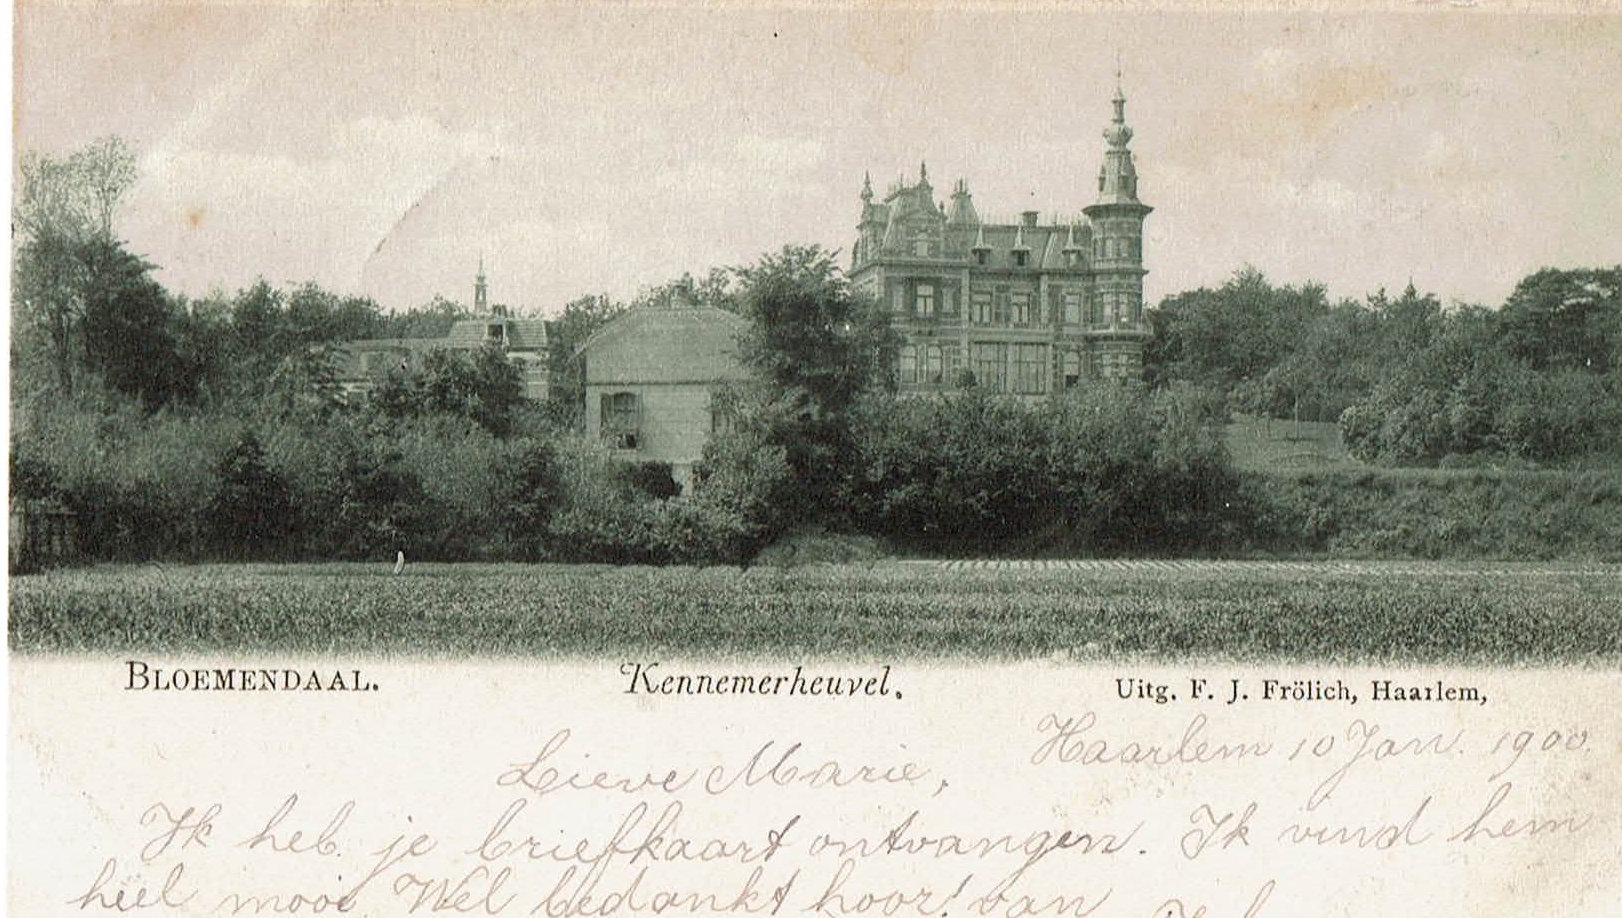 BLOEMENDAAL. Kennemerheuvel. Uitg. F. J. Frölich, Haarlem,
Haarlem 10 Jan. 1900.
Lieve Marie,
Ik heb je briefkaart ontvangen. Ik vind hem
heel mooi. Wel bedankt hoor! van